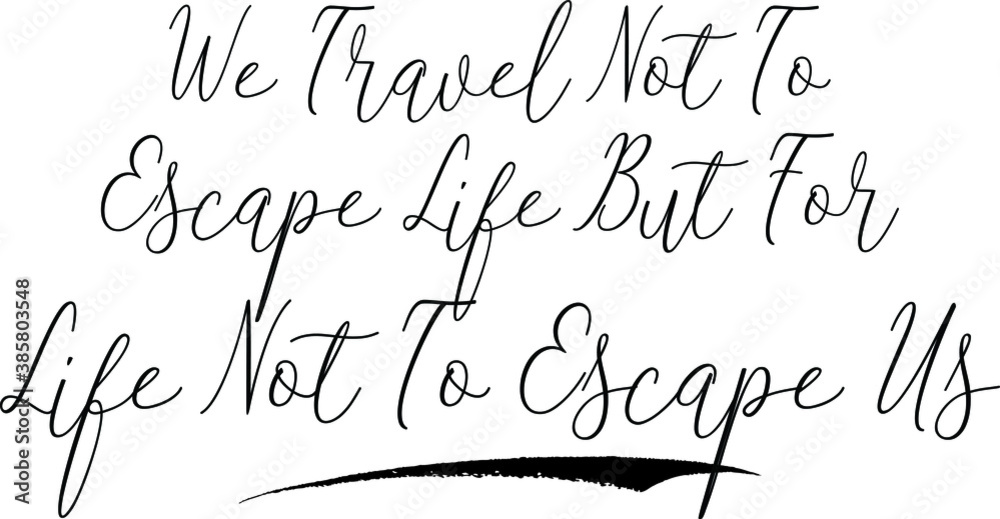 We Travel Not To
Escape Life But For
Life Not To Escape Us
Adobe Stock | #385803548